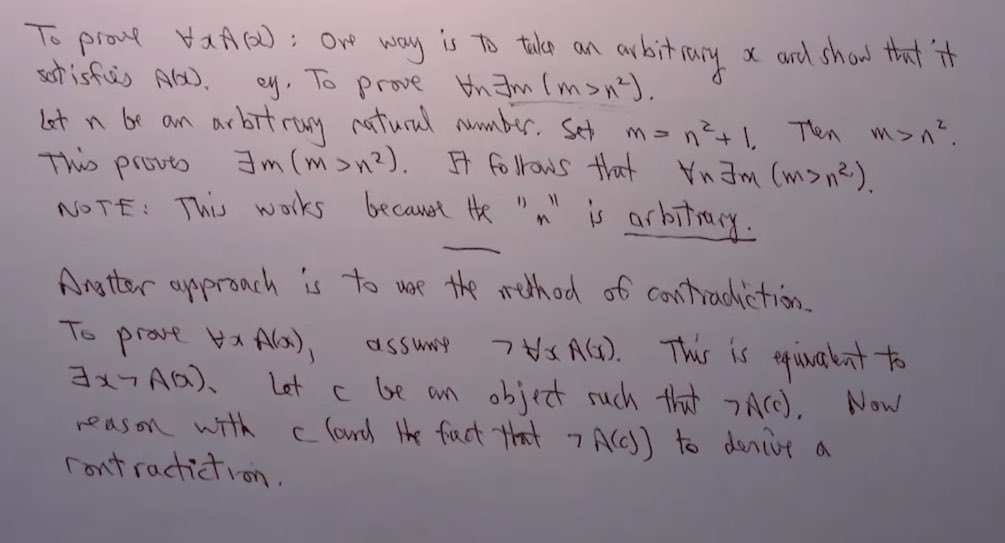 To prove ∀xA(x): One way is to take an arbitrary x and show that it
satisfies A(x). eg. To prove ∀n∃m(m>n²).
Let n be an arbitrary natural number. Set m = n²+1. Then m>n².
This proves ∃m(m>n²). It follows that ∀n∃m(m>n²).
NOTE: This works because the "n" is arbitrary.
Another approach is to use the method of contradiction.
To prove ∀xA(x), assume ¬∀xA(x). This is equivalent to
∃x¬A(x). Let c be an object such that ¬A(c). Now
reason with c (and the fact that ¬A(c)) to derive a
contradiction.